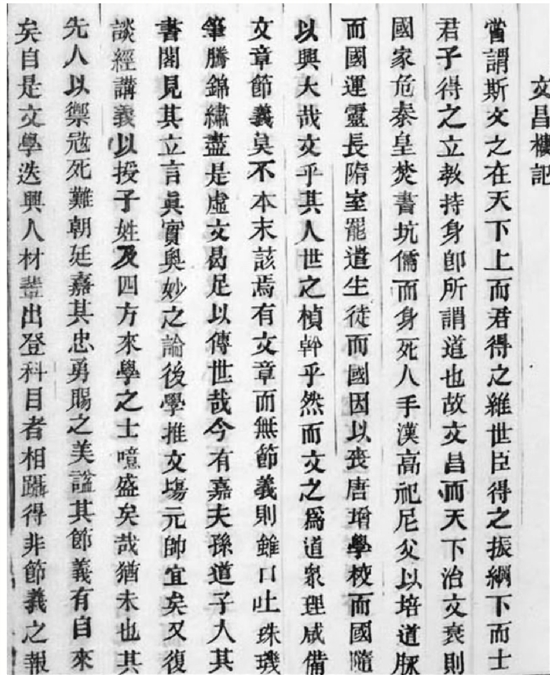 文昌樓記
嘗謂斯文之在天下上而君得之維世臣得之振綱下而士
君子得之立教持身卽所謂道也故文昌而天下治文衰則
國家危秦皇焚書坑儒而身死人手漢高祀尼父以培道脈
而國運靈長隋室罷遣生徒而國因以喪唐增學校而國隨
以興大哉文乎其人世之楨幹乎然而文之爲道衆理咸備
文章節義莫不本末該焉有文章而無節義則雖口吐珠璣
筆騰錦繡盡是虛文曷足以傳世哉今有嘉夫孫道子人其
書閣見其立言眞實奧妙之論後學推文塲元帥宜矣又復
談經講義以授子姓及四方來學之士噫盛矣哉猶未也其
先人以禦冦死難朝廷嘉其忠勇賜之美謚其節義有自來
矣自是文學迭興人材輩出登科目者相躡得非節義之報